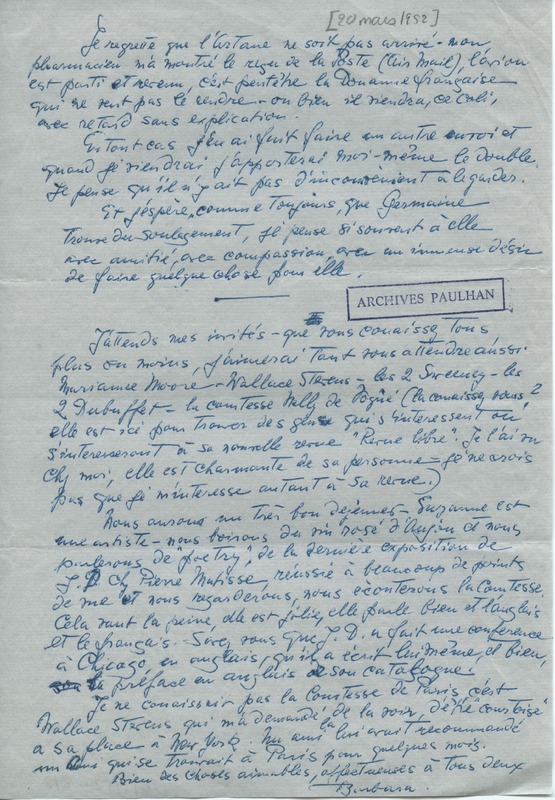 [20 mars 1952]
Je regrette que l'Artane ne soit pas arrivé - mon
pharmacien m'a montré le reçu de la Poste (Air Mail), l'avion
est parti et revenu, c'est peut être la Douane française
qui ne veut pas le rendre - ou bien il viendra, ce colis,
avec retard sans explication.
En tout cas j'en ai fait faire un autre envoi et
quand je viendrai j'apporterai moi-même le double.
Je pense qu'il n'y ait pas d'inconvenient à le garder.
Et j'espère, comme toujours, que Germaine
trouve du soulagement, je pense si souvent à elle
avec amitié, avec compassion, avec un immense désir
de faire quelque chose pour elle.
ARCHIVES PAULHAN
J'attends mes invités - que vous connaissez tous
plus ou moins, j'aimerai tant vous attendre aussi.
Marianne Moore - Wallace Stevens - les 2 Sweeney - les
2 Dubuffet - la comtesse Nelly de Vogüé (la conaissez vous?
elle est ici pour trouver des gens qui s'interessent ou
s'interesseront à sa nouvelle revue "Revue libre". Je l'ai vu
chez moi, elle est charmante de sa personne - je ne crois
pas que je m'interesse autant à sa revue.)
Nous aurons un très bon dejeuner - Suzanne est
une artiste - nous boirons du vin rosé d'Anjou et nous
parlerons de "poetry", de la dernière exposition de
J. D. chez Pierre Matisse, réussie à beaucoup de points
de vue et nous regarderons, nous écouterons la Comtesse.
Cela vaut la peine, elle est jolie, elle parle bien et l'anglais
et le français. Savez vous que J. D. a fait une conférence
à Chicago, en anglais, qu'il a écrit lui même, et bien,
la préface en anglais de son catalogue.
Je ne connaissais pas la Comtesse de Paris, c'est
Wallace Stevens qui m'a demandé de la voir, d'être courtoise
à sa place à New York. Un ami la lui avait recommandé
un ami qui se trouvait à Paris pour quelques mois.
Bien des choses aimables, affectueuses à tous deux
Barbara.